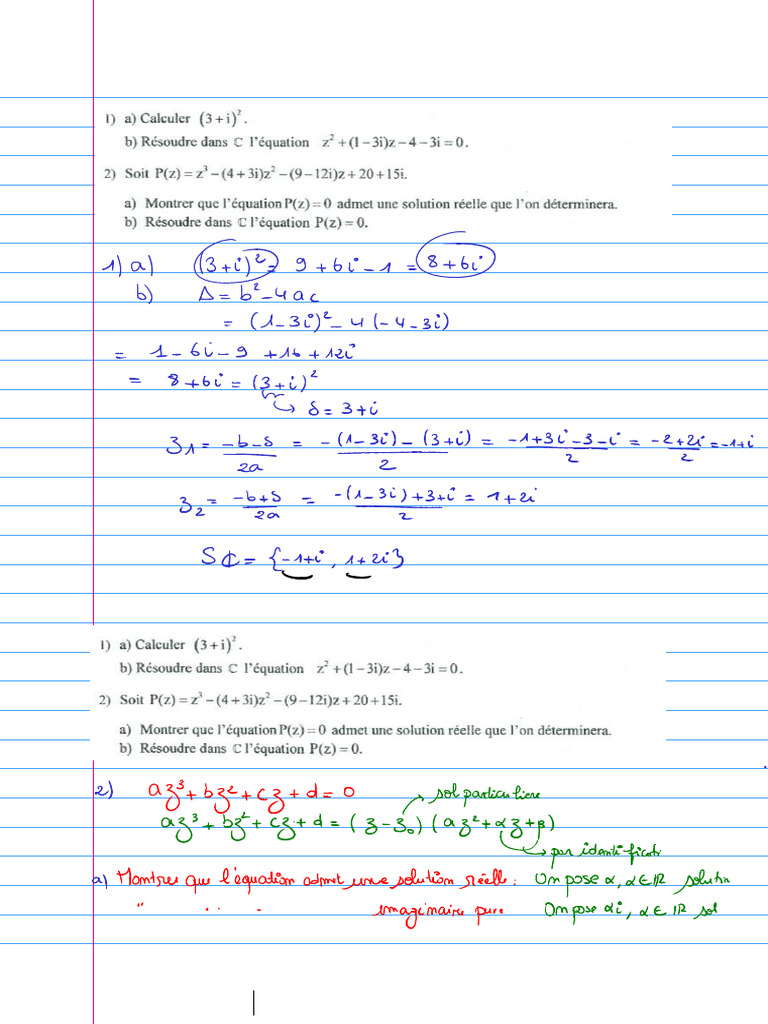 1) a) Calculer (3+i)².
b) Résoudre dans ℂ l'équation z²+(1−3i)z−4−3i=0.
2) Soit P(z)=z³−(4+3i)z²−(9−12i)z+20+15i.
a) Montrer que l'équation P(z)=0 admet une solution réelle que l'on déterminera.
b) Résoudre dans ℂ l'équation P(z)=0.
1) a) (3+i)² = 9+6i−1 = 8+6i
b) Δ = b²−4ac
= (1−3i)²−4(−4−3i)
= 1−6i−9+16+12i
= 8+6i = (3+i)²
↳ δ = 3+i
z1 = (−b−δ)/2a = (−(1−3i)−(3+i))/2 = (−1+3i−3−i)/2 = (−2+2i)/2 = −1+i
z2 = (−b+δ)/2a = (−(1−3i)+3+i)/2 = 1+2i
Sℂ = {−1+i, 1+2i}
1) a) Calculer (3+i)².
b) Résoudre dans ℂ l'équation z²+(1−3i)z−4−3i=0.
2) Soit P(z)=z³−(4+3i)z²−(9−12i)z+20+15i.
a) Montrer que l'équation P(z)=0 admet une solution réelle que l'on déterminera.
b) Résoudre dans ℂ l'équation P(z)=0.
2) az³+bz²+cz+d=0 → sol particulière
az³+bz²+cz+d = (z−z₀)(az²+αz+β)
→ par identificati
a) Montrer que l'équation admet une solution réelle : On pose α, α∈ℝ solution
" .. . . imaginaire pure On pose αi, α∈ℝ sol